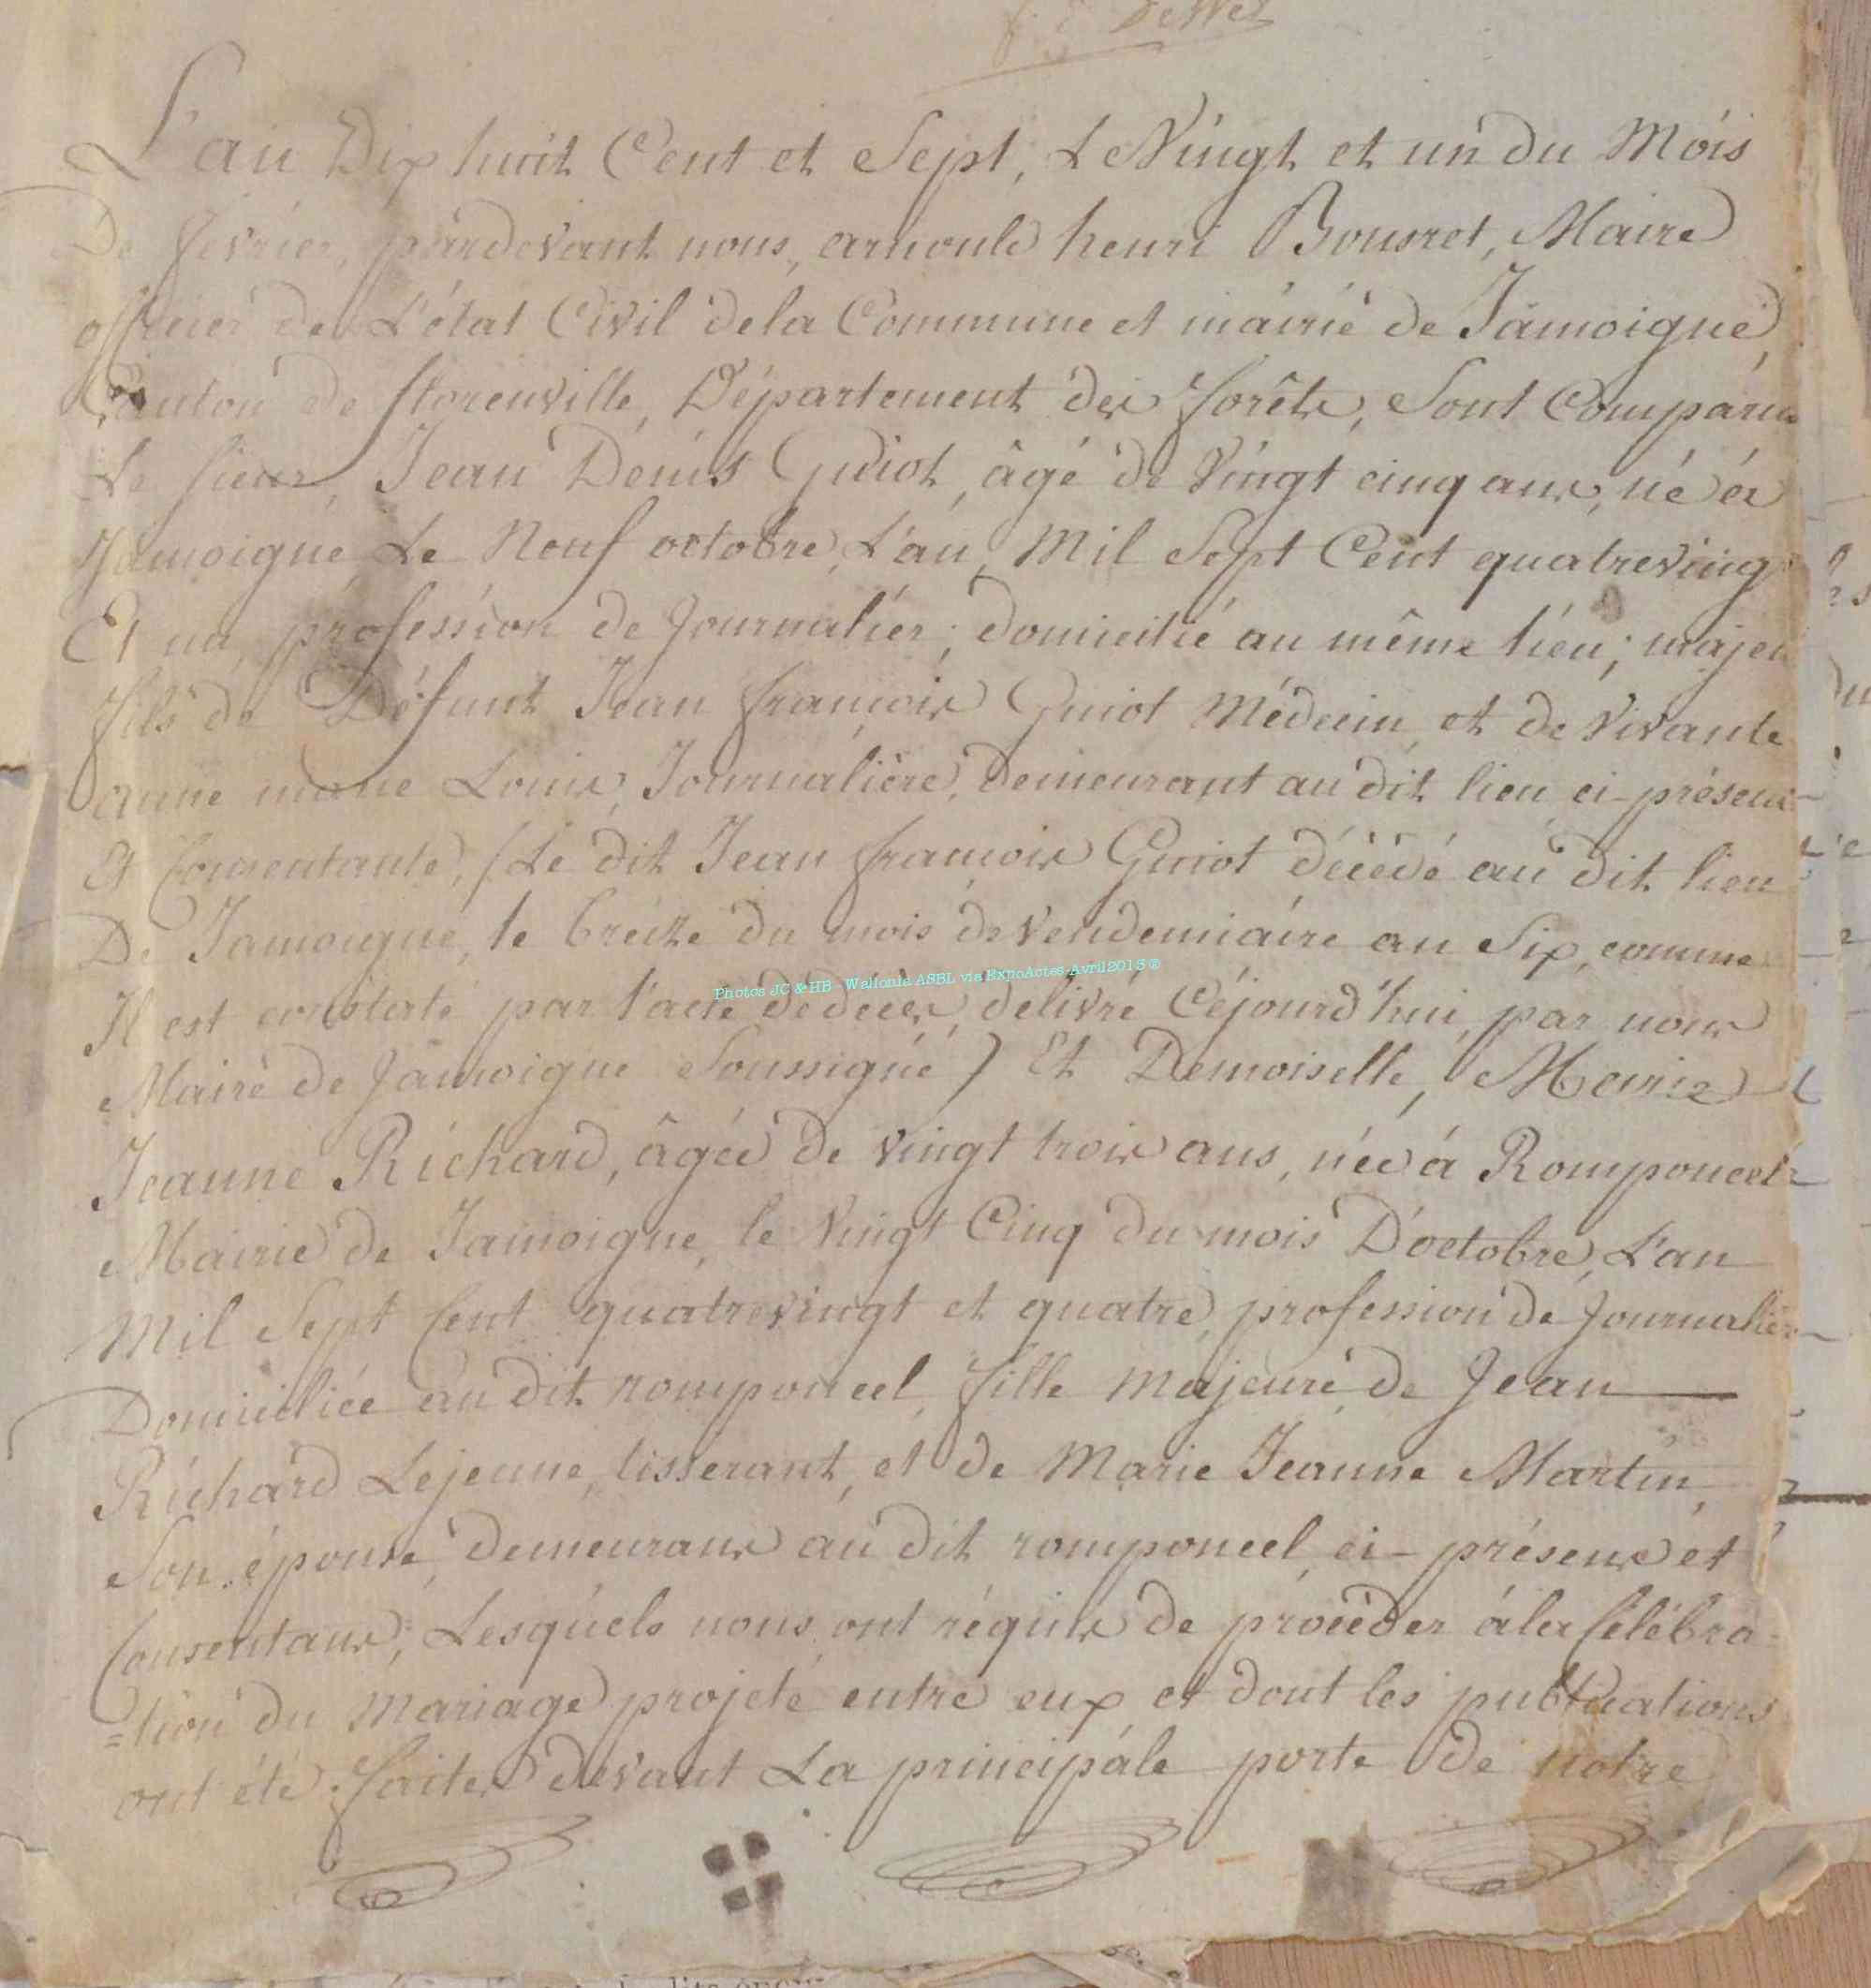 f. d. DeWez
L'an Dix huit Cent et Sept, Le Vingt et un du Mois
De fevrier, pardevant nous, arnould henri Bousret, Maire
officier de L'état Civil de la Commune et mairie de Jamoigne,
Canton de florenville, Département des forêts, Sont Comparus
Le sieur, Jean Denis Guiot, âgé de Vingt cinq ans, né à
Jamoigne Le Neuf octobre, L'an Mil Sept Cent quatreving
Et un, profession de Journalier; domicilié au même lieu; majeu
fils de Défunt Jean françois Guiot Médecin, et de Vivante
anne marie Louis, Journalière, demeurant au dit lieu ci-présen
Et Consentante, (Le dit Jean françois Guiot décédé au dit lieu
De Jamoigne, le treize du mois de Vendemiaire an Six, comme
Il est constaté par l'acte de deces, delivré Cejourd'hui, par nous
Maire de Jamoigne Soussigné) Et Demoiselle, Marie
Jeanne Richard, âgée de vingt trois ans, née à Romponcel
Mairie de Jamoigne, le Vingt Cinq du mois D'octobre, L'an
Mil Sept Cent quatrevingt et quatre, profession de Journalièr
Domiciliée au dit romponcel, fille majeure de Jean
Richard Lejeune, tisserant, et de Marie Jeanne Martin,
Son épouse, demeurans au dit romponcel, ci-présens et
Consentans; Lesquels nous ont réquis de procèder à la Célébra=
=tion du Mariage projeté entre eux et dont les publications
ont été faites devant La principale porte de notre
Photos JC & HB - Wallonia ASBL via ExpoActes-Avril 2015 ®